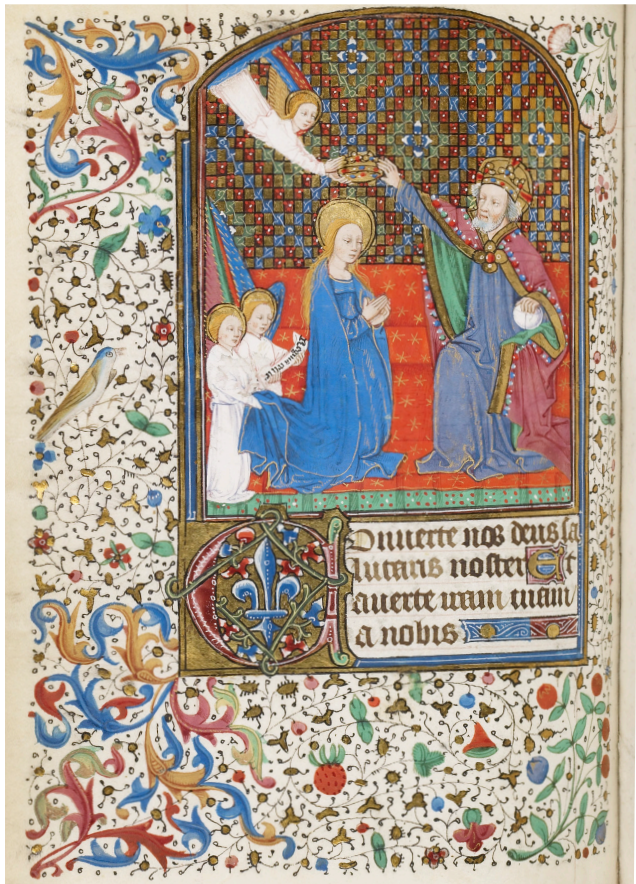 COnuerte nos deus sa
lutaris noster Et
auerte iram tuam
a nobis